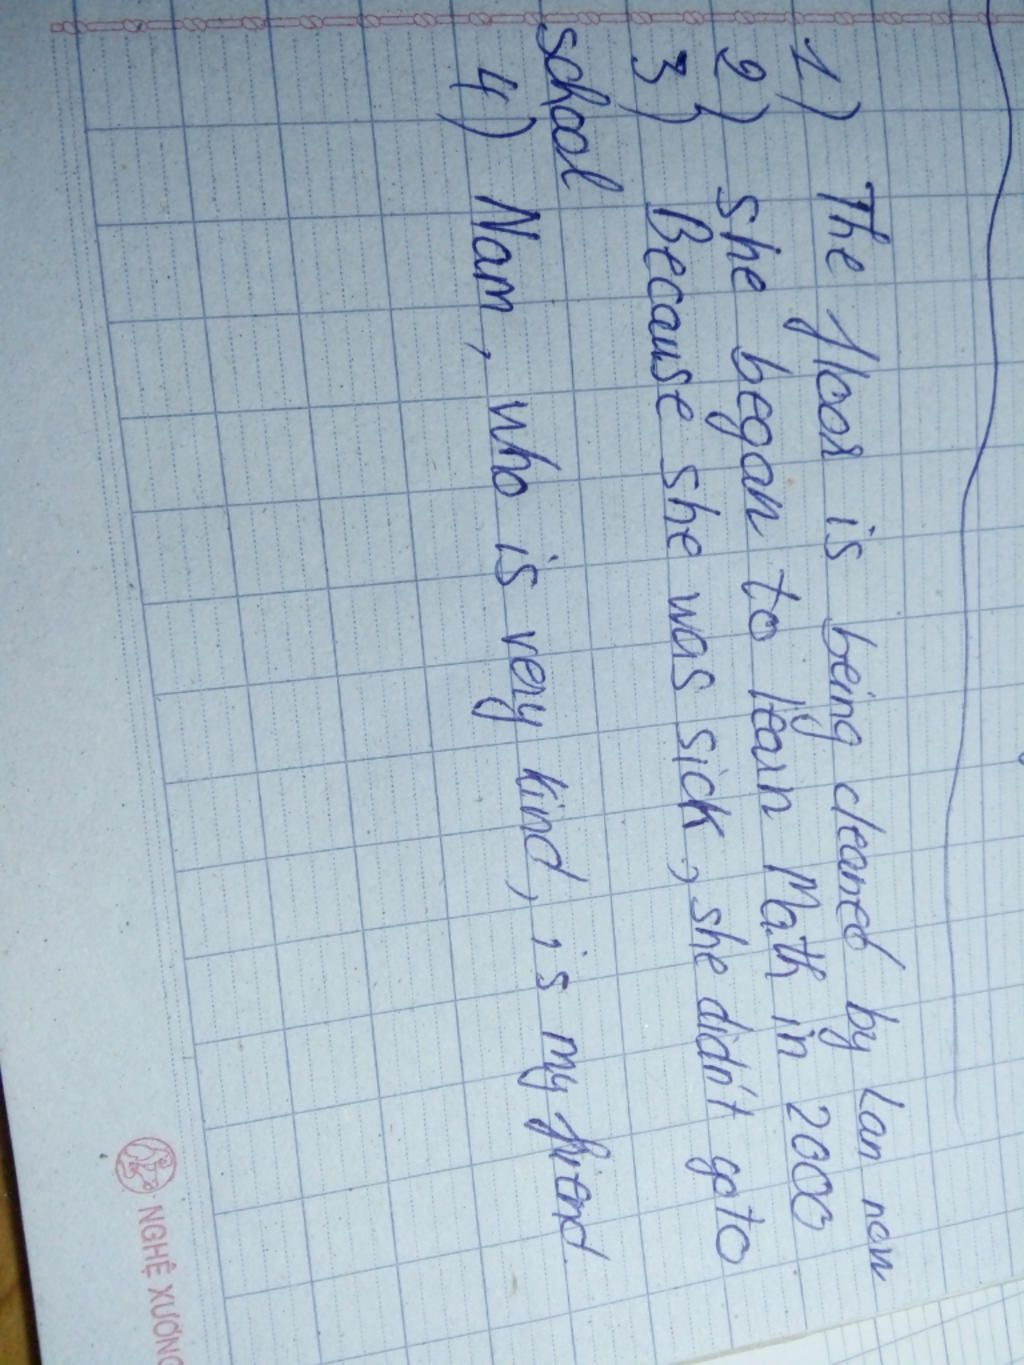 1) The floor is being cleaned by Lan now
2) she began to learn Math in 2000
3) Because she was sick, she didn't go to
school
4) Nam, who is very kind, is my friend
NGHỆ XƯƠNG